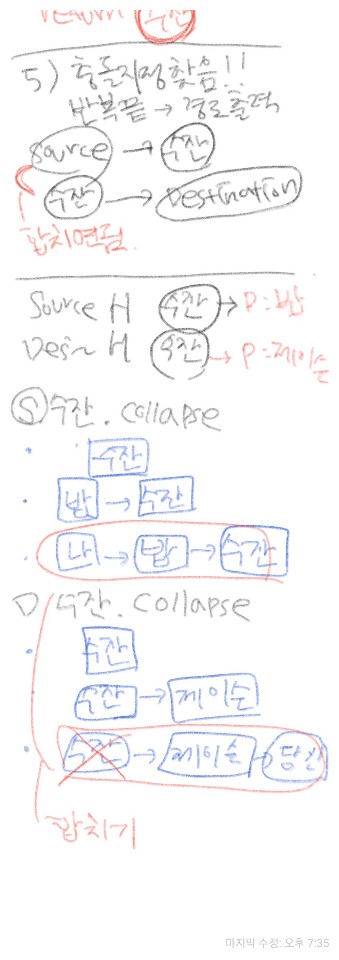 return 수잔
5) 충돌지점 찾음!!
반복끝 → 경로출력
Source → 수잔
수잔 → Destination
합치면됨.
Source H 수잔 → P:밥
Des~ H 수잔 → P:제이슨
Ⓢ 수잔. collapse
· 수잔
· 밥 → 수잔
· 나 → 밥 → 수잔
D 수잔. collapse
· 수잔
수잔 → 제이슨
· 수잔 → 제이슨 → 당신
합치기
마지막 수정: 오후 7:35